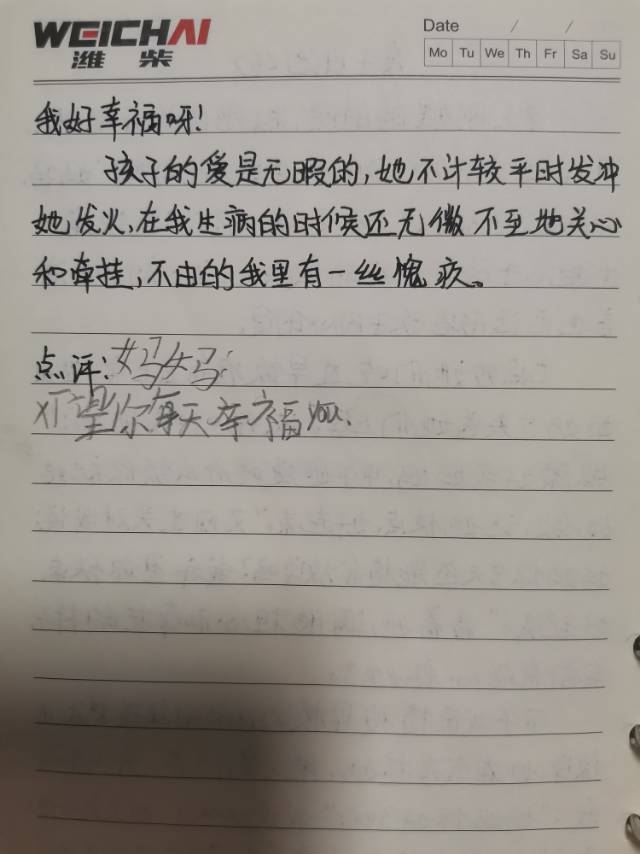 WEICHAI
潍柴
Date / /
Mo Tu We Th Fr Sa Su
我好幸福呀!
孩子的爱是无暇的,她不计较平时发冲
她发火,在我生病的时候还无微不至地关心
和牵挂,不由的我里有一丝愧疚。
点评:妈妈:
希望你每天幸福you.